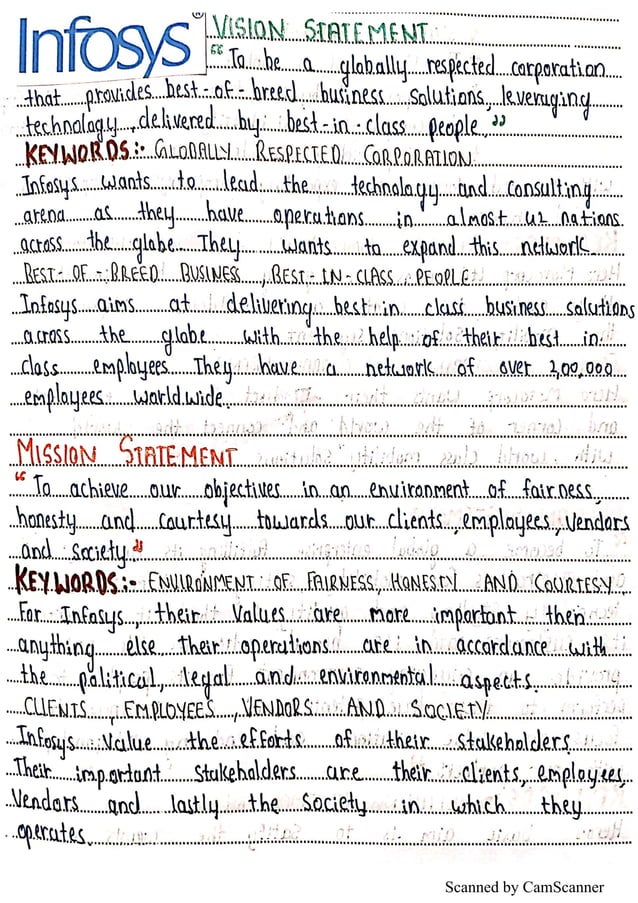 Infosys® VISION STATEMENT
"To be a globally respected corporation
that provides best-of-breed business solutions, leveraging
technology, delivered by best-in-class people."
KEYWORDS:- GLOBALLY RESPECTED CORPORATION
Infosys wants to lead the technology and consulting
arena as they have operations in almost 42 nations
across the globe. They wants to expand this network.
BEST-OF-BREED BUSINESS, BEST-IN-CLASS PEOPLE
Infosys aims at delivering best in class business solutions
across the globe with the help of their best in
class employees. They have a network of over 2,00,000
employees worldwide.
MISSION STATEMENT
"To achieve our objectives in an environment of fairness,
honesty and courtesy towards our clients, employees, Vendors
and Society"
KEYWORDS:- ENVIRONMENT OF FAIRNESS, HONESTY AND COURTESY
For Infosys, their Values are more important then
anything else. Their operations are in accordance with
the political, legal and environmental aspects.
CLIENTS, EMPLOYEES, VENDORS AND SOCIETY
Infosys Value the efforts of their stakeholders.
Their important stakeholders are their clients, employees,
Vendors and lastly the Society in which they
operates.
Scanned by CamScanner